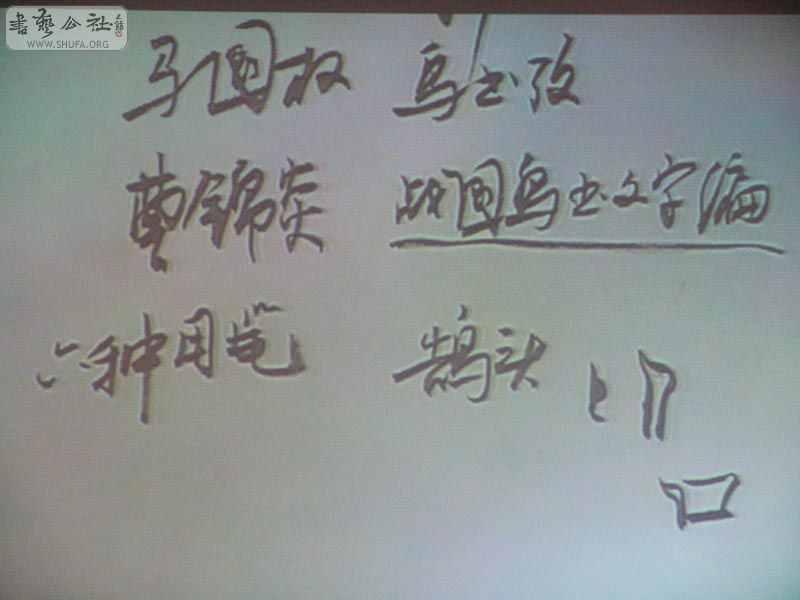 書藝公社
WWW.SHUFA.ORG
马国权 鸟书考
曹锦炎 战国鸟书文字编
六种用笔 鹄头